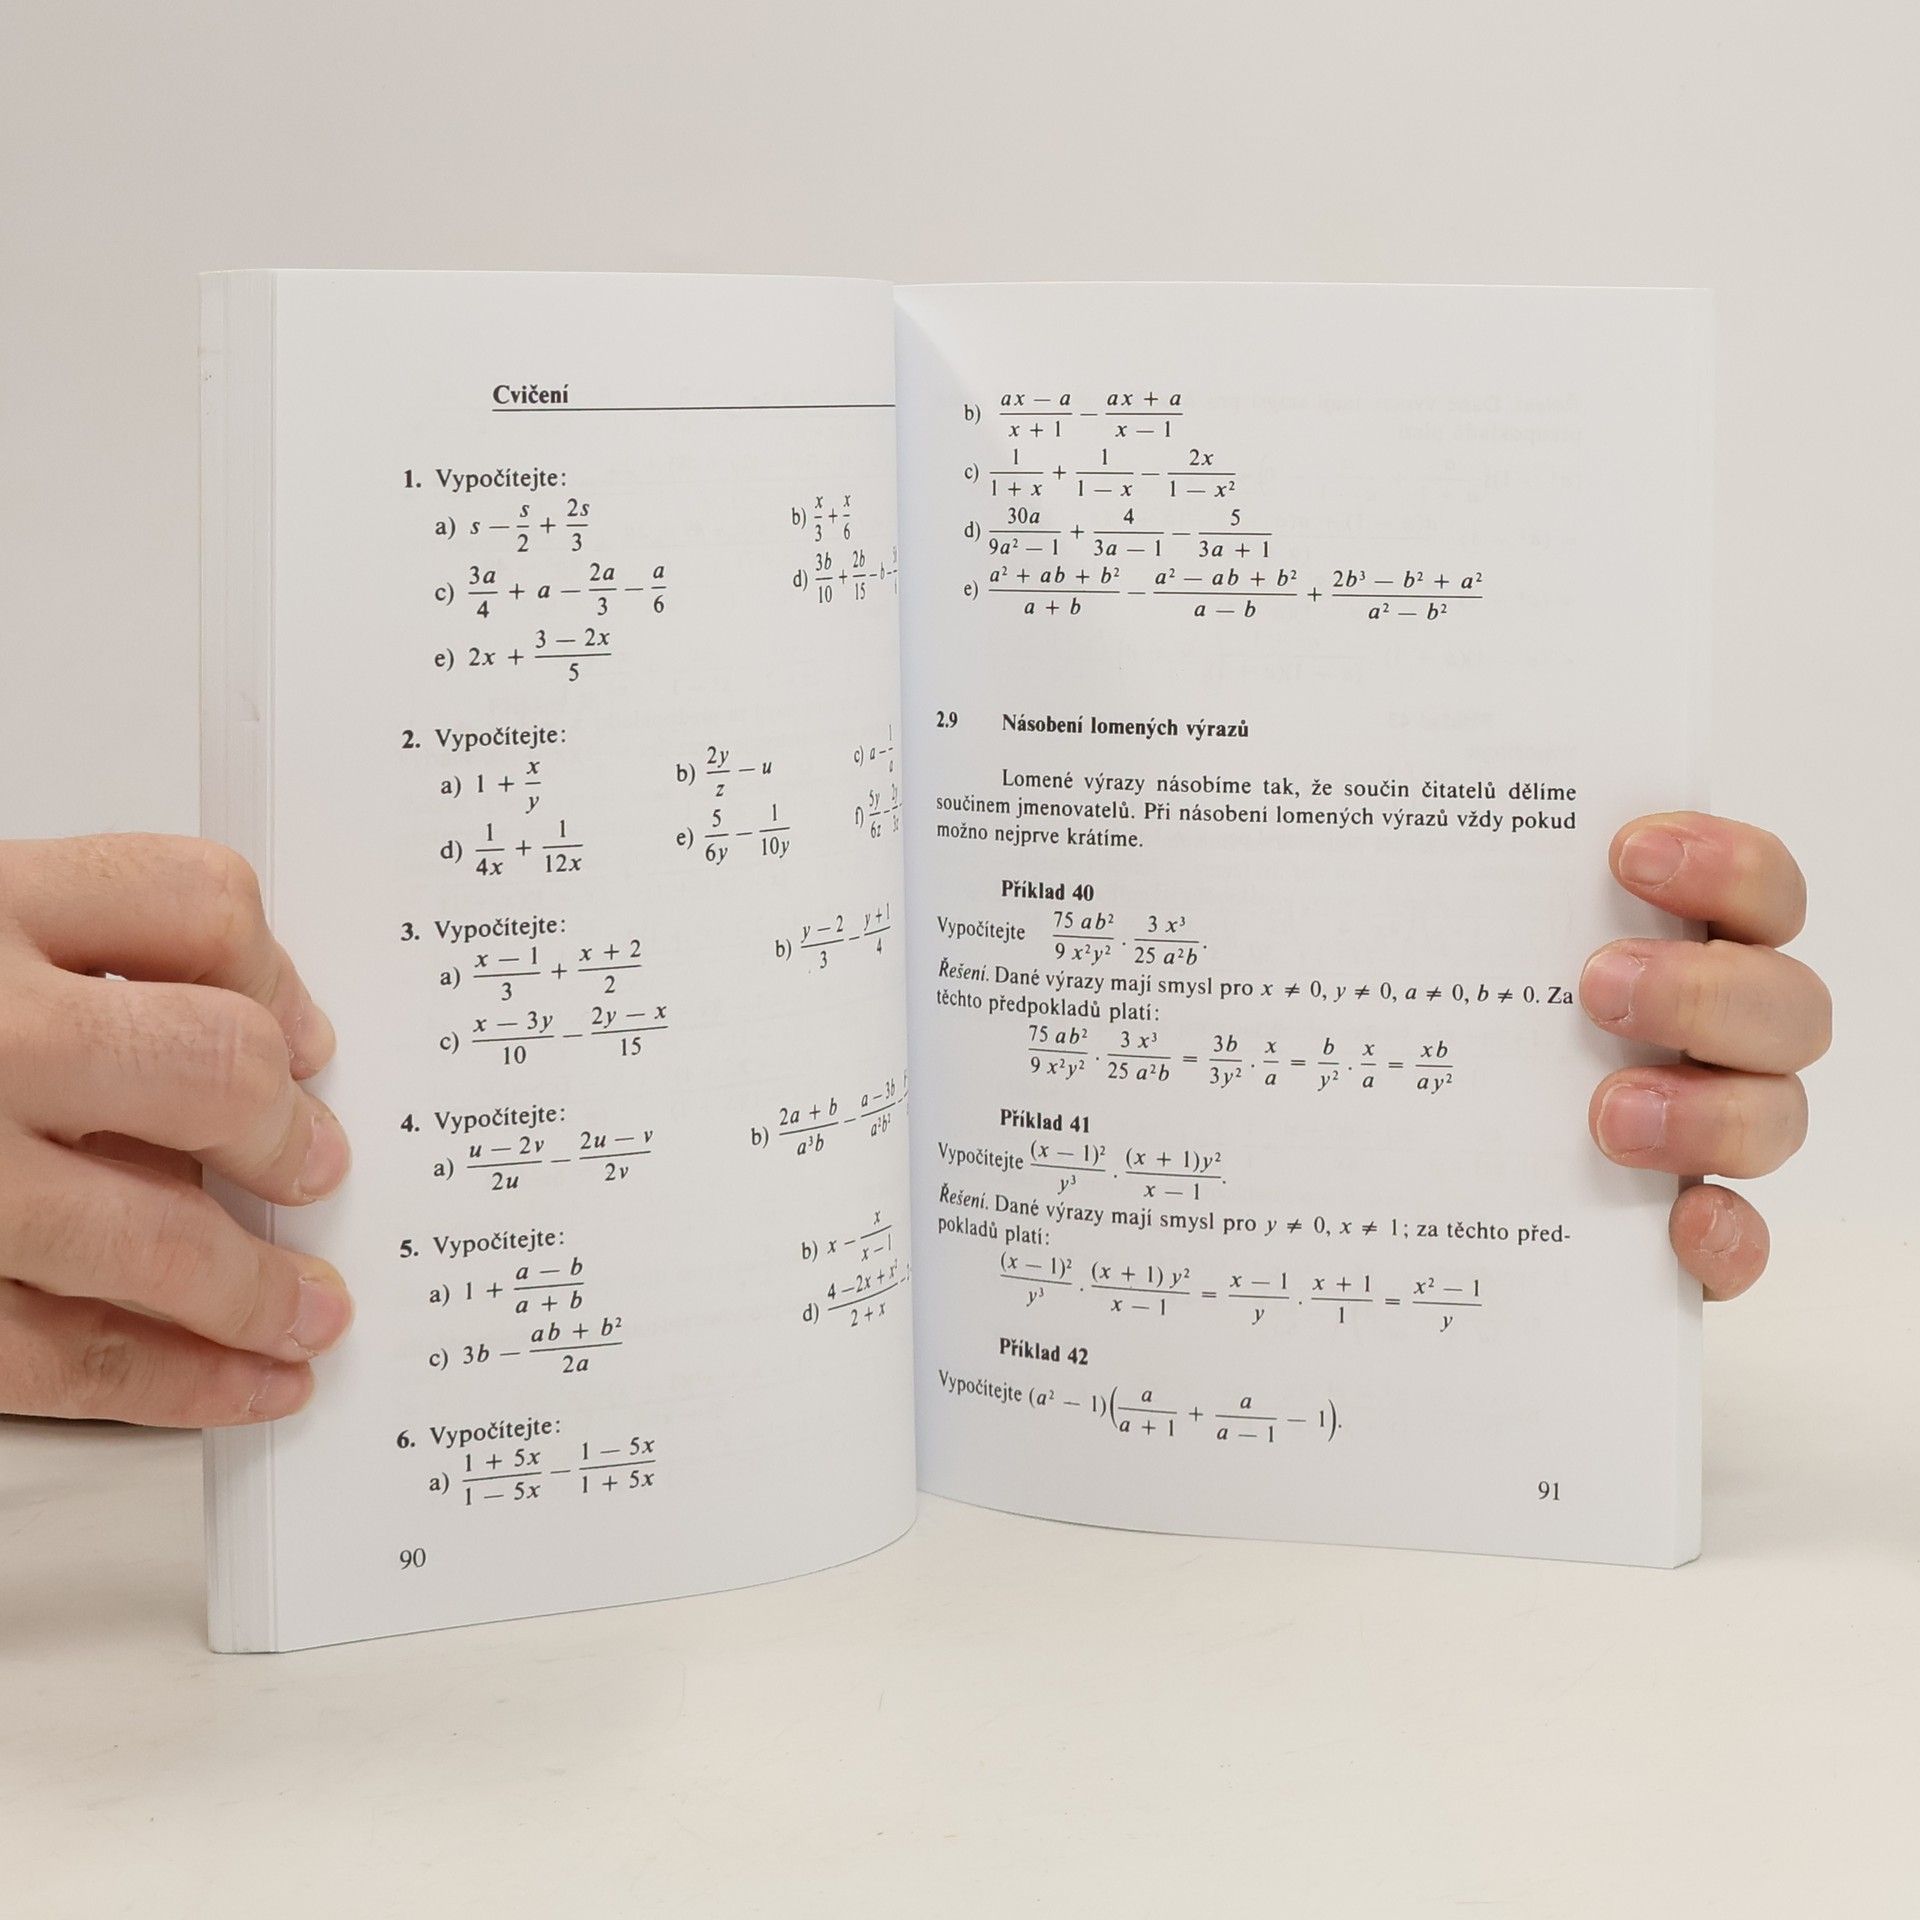 Cvičení
1. Vypočítejte:
a) s − s/2 + 2s/3 b) x/3 + x/6
c) 3a/4 + a − 2a/3 − a/6 d) 3b/10 + 2b/15 − b −
e) 2x + (3 − 2x)/5
2. Vypočítejte:
a) 1 + x/y b) 2y/z − u c) a − 1/a
d) 1/4x + 1/12x e) 5/6y − 1/10y f) 5y/6z −
3. Vypočítejte:
a) (x − 1)/3 + (x + 2)/2 b) (y − 2)/3 − (y + 1)/4
c) (x − 3y)/10 − (2y − x)/15
4. Vypočítejte:
a) (u − 2v)/2u − (2u − v)/2v b) (2a + b)/a³b − (a − 3b)/a²b² −
5. Vypočítejte:
a) 1 + (a − b)/(a + b) b) x − x/(x − 1)
c) 3b − (ab + b²)/2a d) (4 − 2x + x²)/(2 + x) −
6. Vypočítejte:
a) (1 + 5x)/(1 − 5x) − (1 − 5x)/(1 + 5x)
90
b) (ax − a)/(x + 1) − (ax + a)/(x − 1)
c) 1/(1 + x) + 1/(1 − x) − 2x/(1 − x²)
d) 30a/(9a² − 1) + 4/(3a − 1) − 5/(3a + 1)
e) (a² + ab + b²)/(a + b) − (a² − ab + b²)/(a − b) + (2b³ − b² + a²)/(a² − b²)
2.9 Násobení lomených výrazů
Lomené výrazy násobíme tak, že součin čitatelů dělíme
součinem jmenovatelů. Při násobení lomených výrazů vždy pokud
možno nejprve krátíme.
Příklad 40
Vypočítejte 75 ab²/9 x²y² · 3 x³/25 a²b.
Řešení. Dané výrazy mají smysl pro x ≠ 0, y ≠ 0, a ≠ 0, b ≠ 0. Za
těchto předpokladů platí:
75 ab²/9 x²y² · 3 x³/25 a²b = 3b/3y² · x/a = b/y² · x/a = xb/ay²
Příklad 41
Vypočítejte (x − 1)²/y³ · (x + 1)y²/(x − 1).
Řešení. Dané výrazy mají smysl pro y ≠ 0, x ≠ 1; za těchto před-
pokladů platí:
(x − 1)²/y³ · (x + 1) y²/(x − 1) = (x − 1)/y · (x + 1)/1 = (x² − 1)/y
Příklad 42
Vypočítejte (a² − 1)(a/(a + 1) + a/(a − 1) − 1).
91